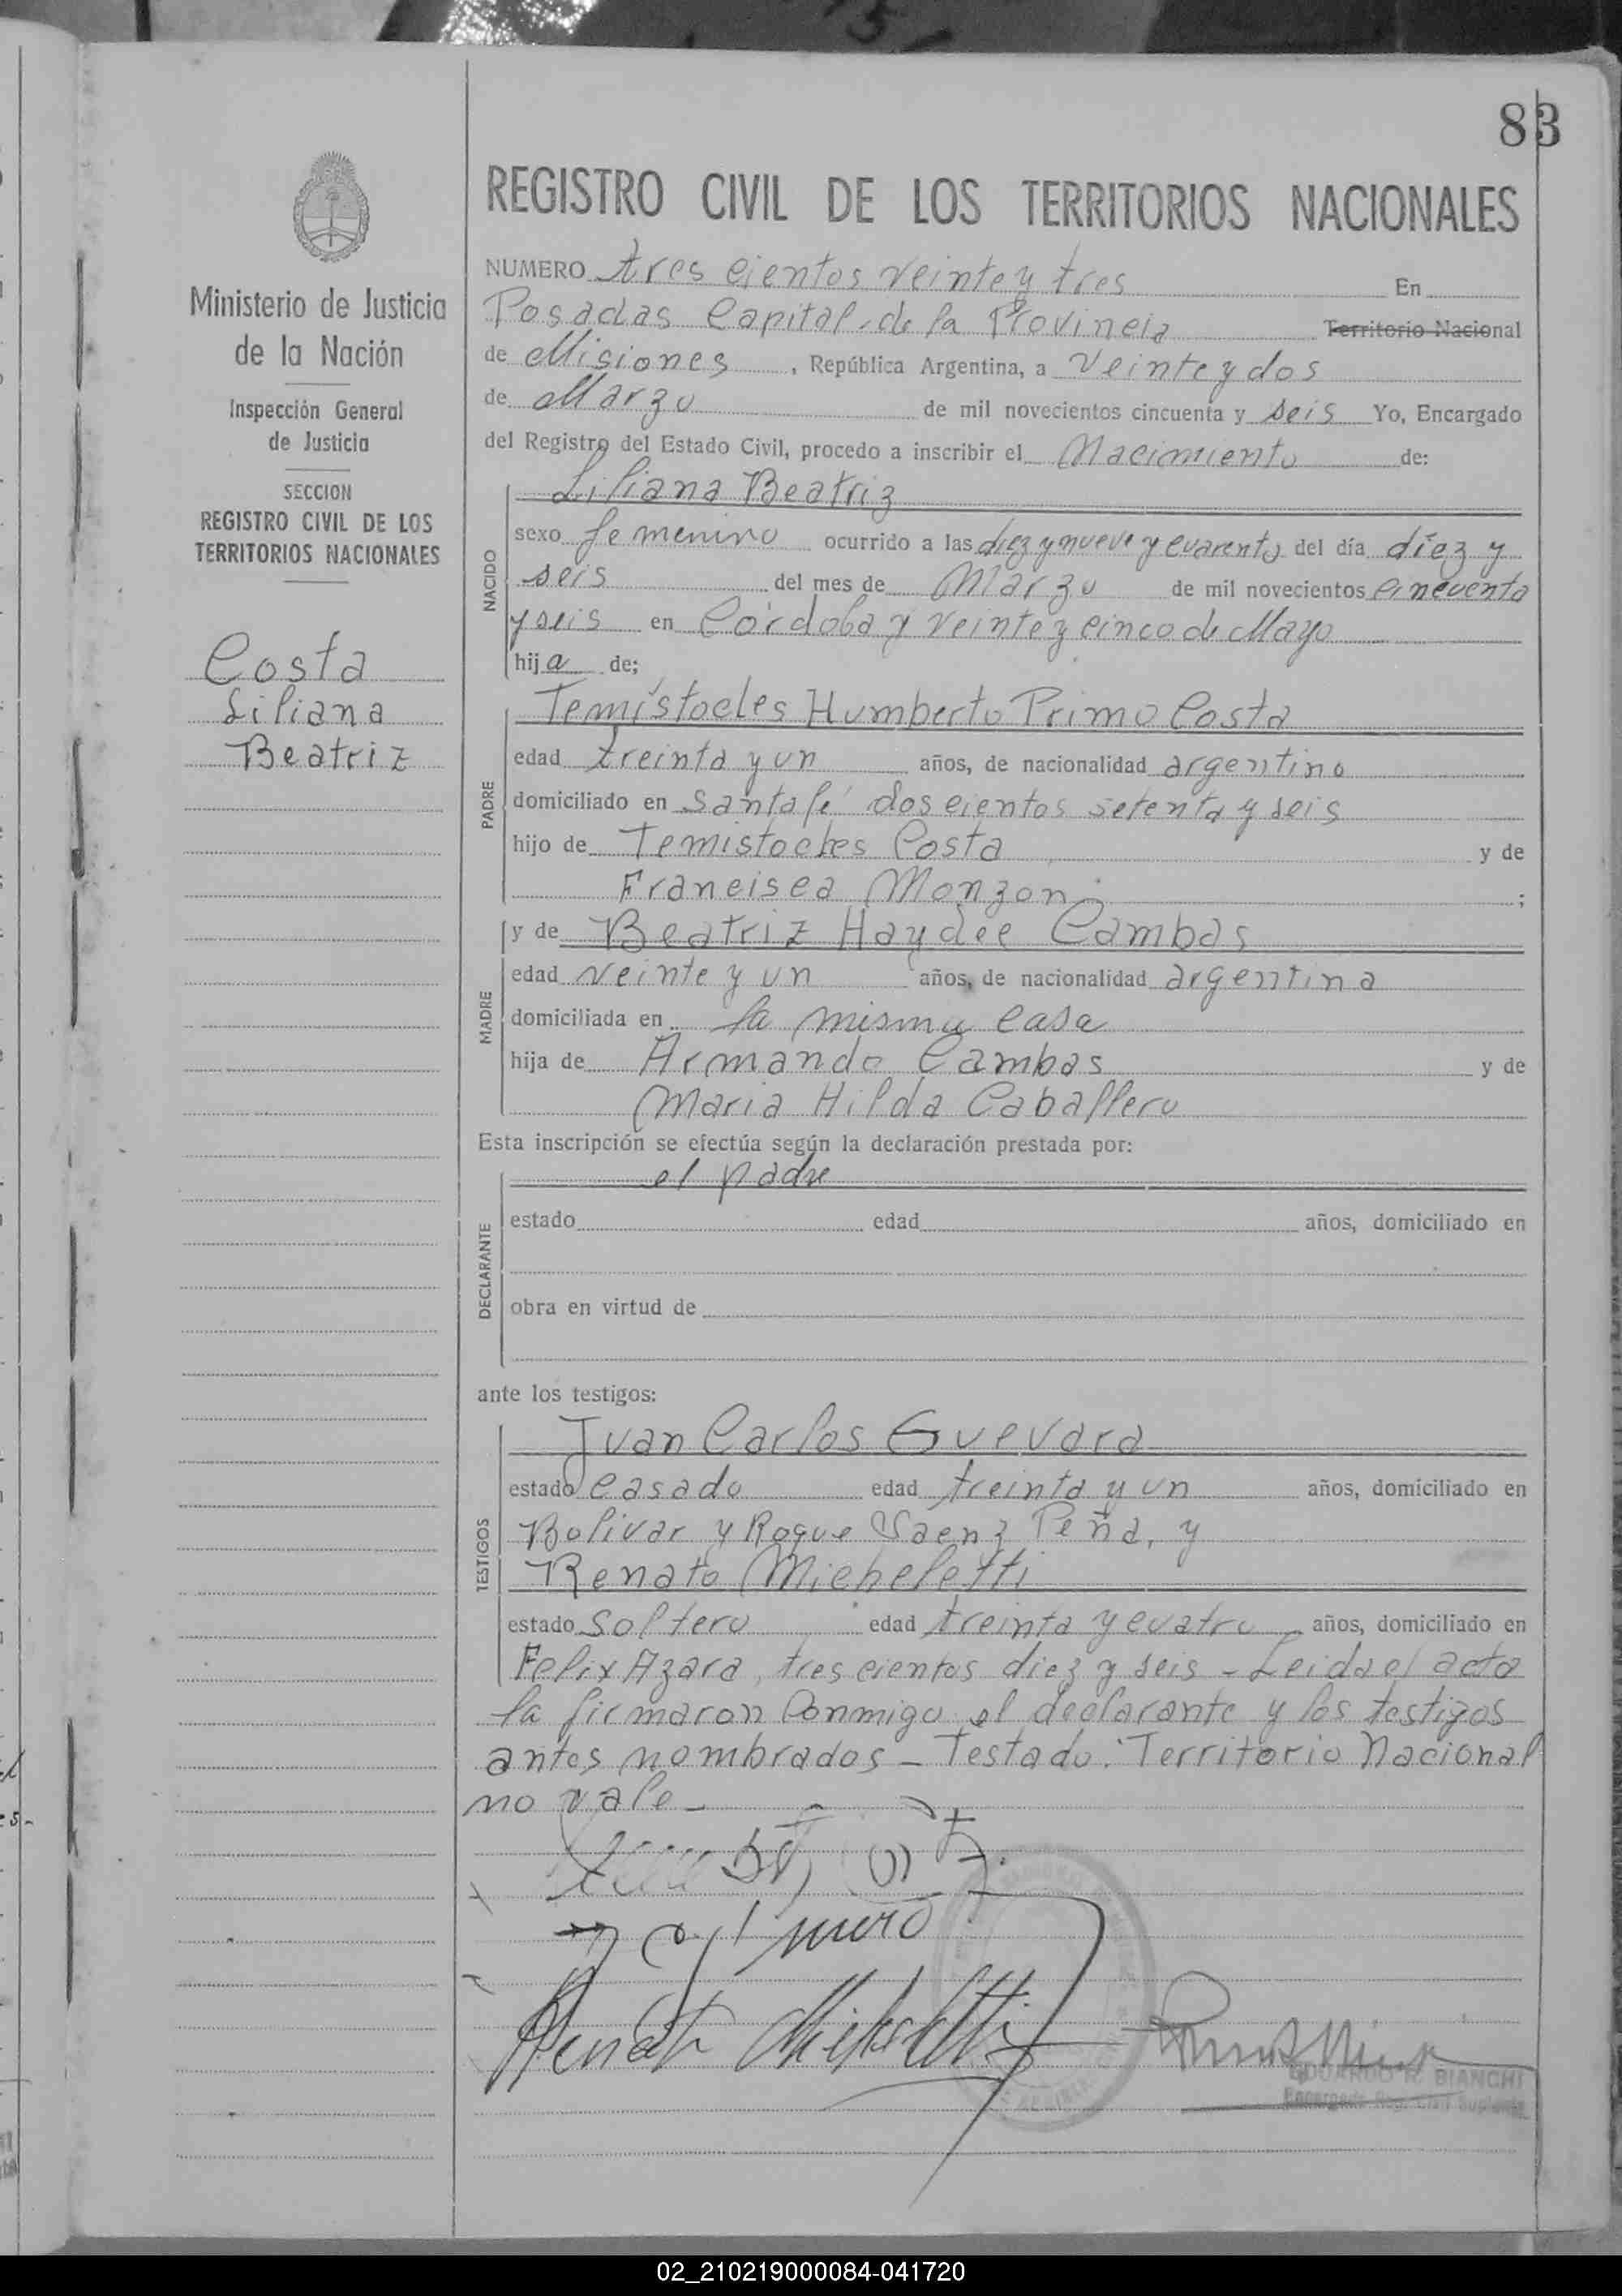 83
REGISTRO CIVIL DE LOS TERRITORIOS NACIONALES
Ministerio de Justicia
de la Nación
Inspección General
de Justicia
SECCION
REGISTRO CIVIL DE LOS
TERRITORIOS NACIONALES
Costa
Liliana
Beatriz
NUMERO tres cientos veinte y tres En
Posadas Capital de la Provincia Territorio Nacional
de Misiones, República Argentina, a veinte y dos
de Marzo de mil novecientos cincuenta y seis Yo, Encargado
del Registro del Estado Civil, procedo a inscribir el Nacimiento de:
NACIDO
Liliana Beatriz
sexo femenino ocurrido a las diez y nueve y cuarenta del día diez y
seis del mes de Marzo de mil novecientos cincuenta
y seis en Córdoba y veinte y cinco de Mayo
hija de;
PADRE
Temístocles Humberto Primo Costa
edad treinta y un años, de nacionalidad argentino
domiciliado en Santa fé dos cientos setenta y seis
hijo de Temistocles Costa y de
Francisca Monzon;
MADRE
y de Beatriz Haydee Cambas
edad veinte y un años, de nacionalidad argentina
domiciliada en la misma casa
hija de Armando Cambas y de
Maria Hilda Caballero
Esta inscripción se efectúa según la declaración prestada por:
DECLARANTE
el padre
estado edad años, domiciliado en
obra en virtud de
ante los testigos:
TESTIGOS
Juan Carlos Guevara
estado casado edad treinta y un años, domiciliado en
Bolivar y Roque Saenz Peña, y
Renato Micheletti
estado soltero edad treinta y cuatro años, domiciliado en
Felix Azara, tres cientos diez y seis - Leida el acta
la firmaron conmigo el declarante y los testigos
antes nombrados - Testado: Territorio Nacional
no vale -
Renato Micheletti
EDUARDO R. BIANCHI
Encargado Reg. Civil Suplente
02_210219000084-041720